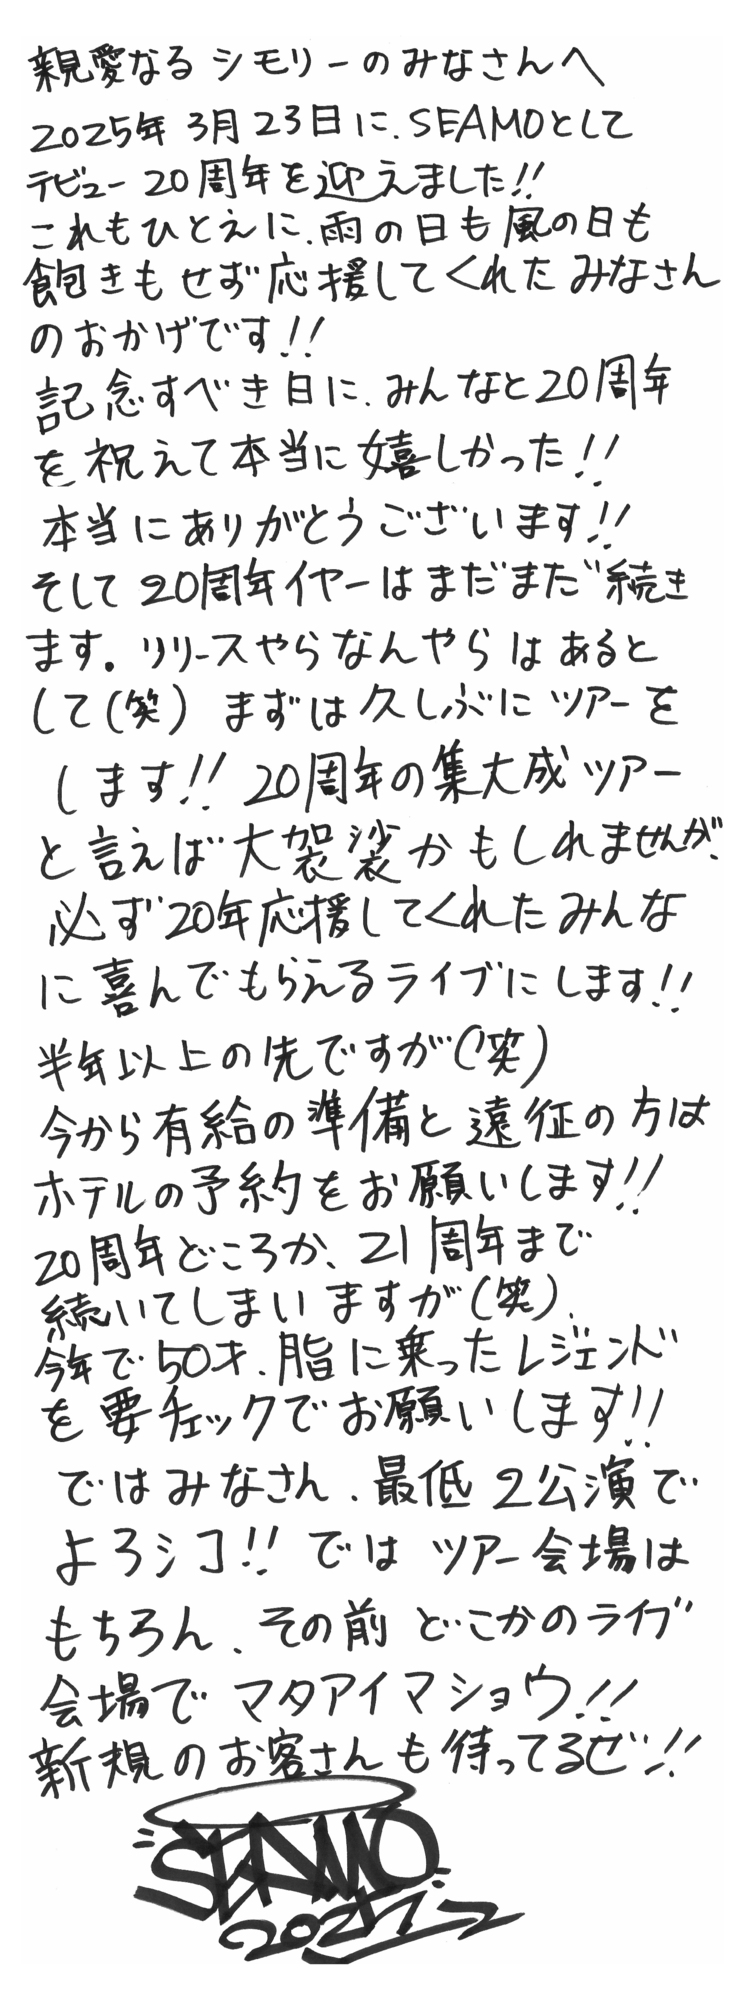 親愛なるシモリーのみなさんへ
2025年3月23日に、SEAMOとして
デビュー20周年を迎えました!!
これもひとえに、雨の日も風の日も
飽きもせず応援してくれたみなさん
のおかげです!!
記念すべき日に、みんなと20周年
を祝えて本当に嬉しかった!!
本当にありがとうございます!!
そして20周年イヤーはまだまだ続き
ます。リリースやらなんやらはあると
して(笑) まずは久しぶにツアーを
します!! 20周年の集大成ツアー
と言えば大袈裟かもしれませんが、
必ず20年応援してくれたみんな
に喜んでもらえるライブにします!!
半年以上の先ですが(笑)
今から有給の準備と遠征の方は
ホテルの予約をお願いします!!
20周年どころか、21周年まで
続いてしまいますが(笑)、
今年で50才、脂に乗ったレジェンド
を要チェックでお願いします!!
ではみなさん、最低2公演で
よろシコ!! では ツアー会場は
もちろん、その前どこかのライブ
会場で マタアイマショウ!!
新規のお客さんも待ってるぜ!!
SEAMO